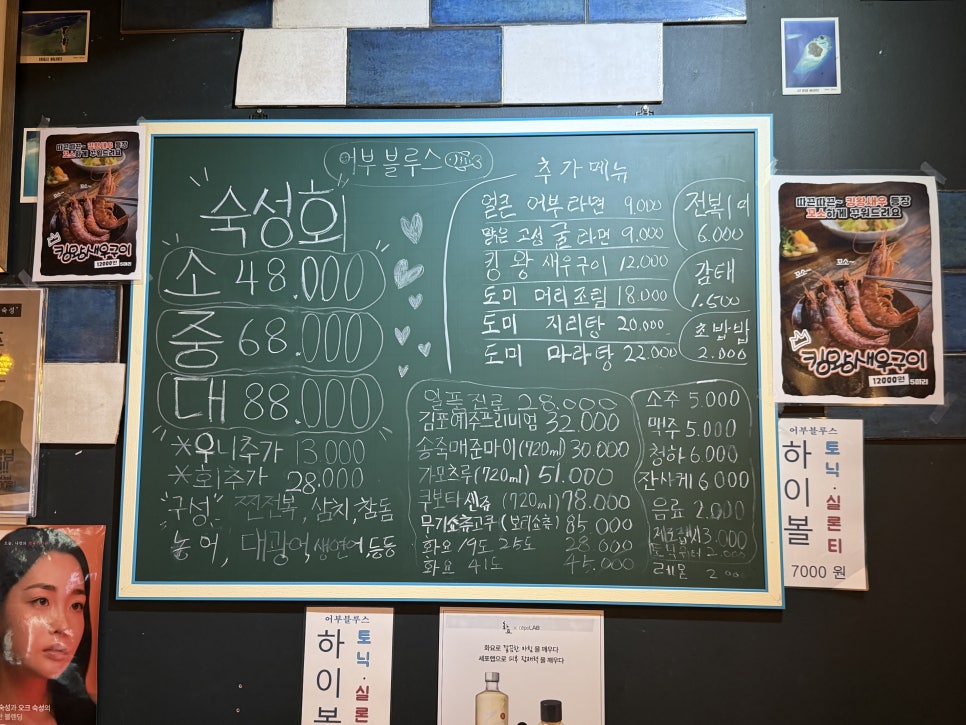 어부블루스
숙성회
소 48.000
중 68.000
대 88.000
*우니추가 13.000
*회추가 28.000
"구성" 찐전복, 삼치, 참돔
농어, 대광어, 생연어 등등
추가메뉴
얼큰 어부라면 9.000
맑은 고성 굴라면 9.000
킹왕새우구이 12.000
도미 머리조림 18.000
도미 지리탕 20.000
도미 마라탕 22.000
6.000
감태
1.500
초밥밥
2.000
일품진로 28.000
김포예주프리미엄 32.000
송죽매준마이(720ml) 30.000
가모츠루(720ml) 51.000
쿠보타센쥬 (720ml) 78.000
(보리소츄) 85.000
화요 19도, 25도 28.000
화요 41도 45.000
소주 5.000
맥주 5.000
청하 6.000
잔사케 6000
음료 2.000
3.000
토닉워터 2.000
레몬
따끈따끈~ 킹왕새우 등장
꼬소하게 꾸워드려요
킹왕새우구이
12000원 5마리
따끈따끈~ 킹왕새우 등장
꼬소하게 꾸워드려요
꼬소~
꼬소~
킹왕새우구이
12000원 5마리
어부블루스
하이볼
토닉·실론티
7000 원
어부블루스
하이보
토닉·실론
화요로 깔끔한 아침을 깨우다